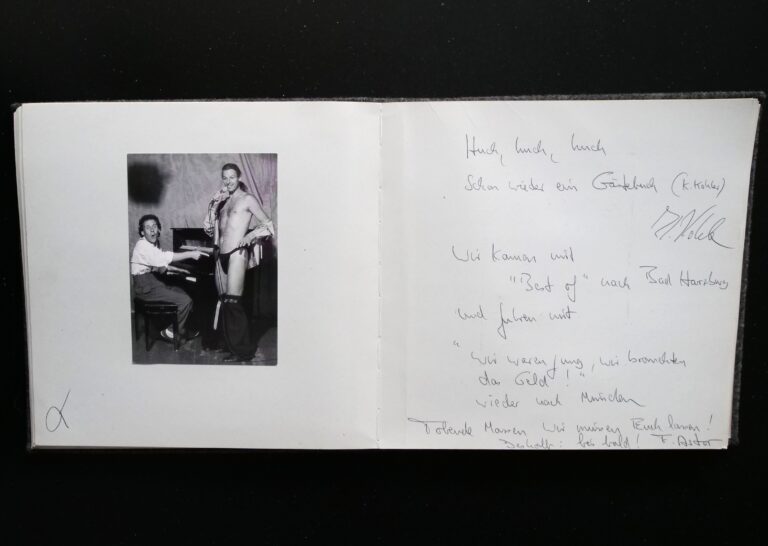 Huch, huch, huch
Schon wieder ein Gästebuch (K. Kohler)
Wir kamen mit
"Best of" nach Bad Harzburg
und fuhren mit
"Wir waren jung, wir brauchten
das Geld!"
wieder nach München
Tobende Massen. Wir müssen Euch lassen!
Deshalb: bis bald! F. Astor